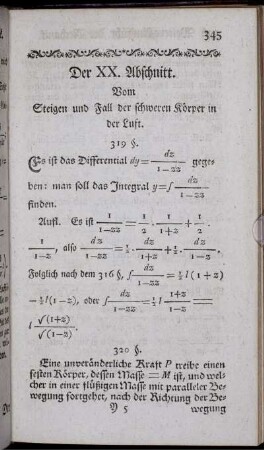 345
Der XX. Abschnitt.
Vom
Steigen und Fall der schweren Körper in
der Luft.
319 §.
Es ist das Differential dy = dz/(1-zz) gege
ben: man soll das Integral y = ∫ dz/(1-zz)
finden.
Aufl. Es ist 1/(1-zz) = 1/2 . 1/(1+z) + 1/2 .
1/(1-z), also dz/(1-zz) = 1/2 . dz/(1+z) + 1/2 . dz/(1-z),
Folglich nach dem 316 §, ∫ dz/(1-zz) = 1/2 l (1+z)
- 1/2 l (1-z), oder ∫ dz/(1-zz) = 1/2 l (1+z)/(1-z) =
l √(1+z)/√(1-z).
320 §.
Eine unveränderliche Kraft P treibe einen
festen Körper, dessen Masse = M ist, und wel-
cher in einer flüßigen Masse mit paralleler Be-
wegung fortgehet, nach der Richtung der Be-
Y 5 wegung